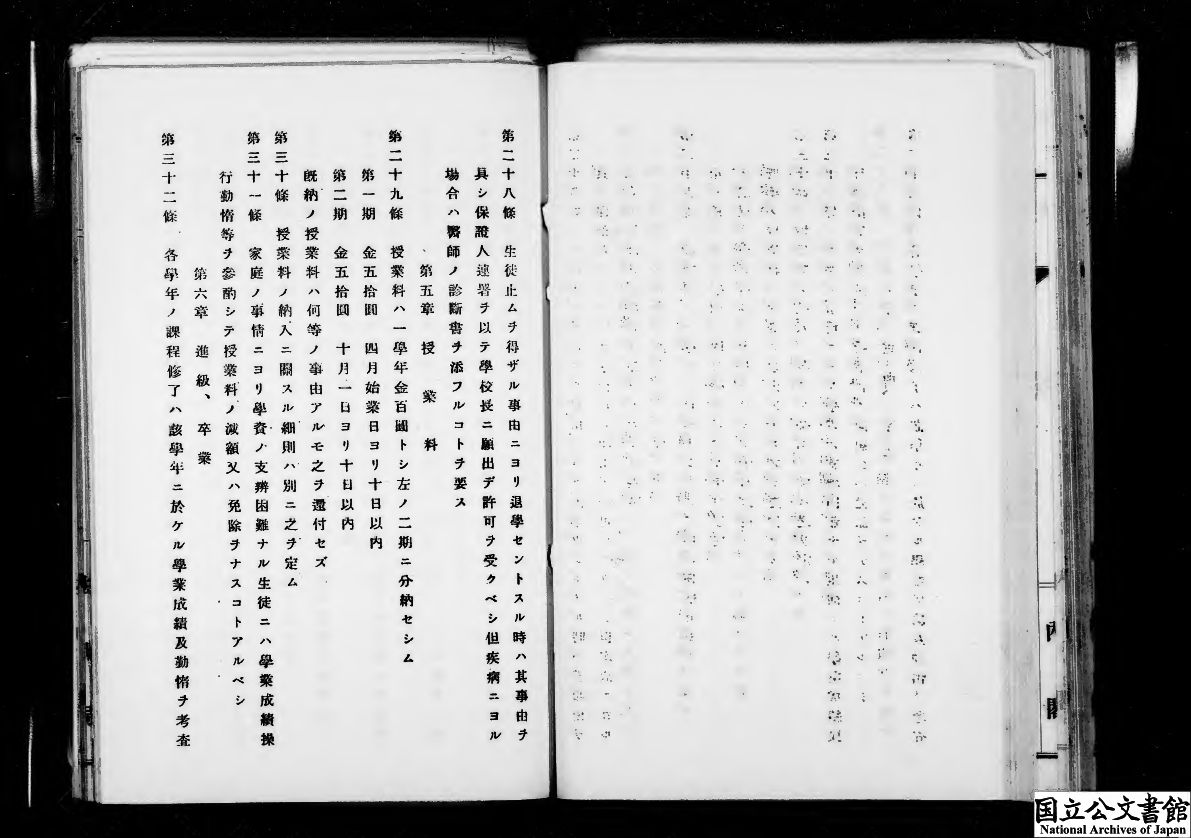 第二十八條 生徒止ムヲ得ザル事由ニヨリ退學セントスル時ハ其事由ヲ
具シ保證人連署ヲ以テ學校長ニ願出デ許可ヲ受クベシ但疾病ニヨル
場合ハ醫師ノ診斷書ヲ添フルコトヲ要ス
第五章 授業料
第二十九條 授業料ハ一學年金百圓トシ左ノ二期ニ分納セシム
第一期 金五拾圓 四月始業日ヨリ十日以内
第二期 金五拾圓 十月一日ヨリ十日以内
既納ノ授業料ハ何等ノ事由アルモ之ヲ還付セズ
第三十條 授業料ノ納入ニ關スル細則ハ別ニ之ヲ定ム
第三十一條 家庭ノ事情ニヨリ學資ノ支辨困難ナル生徒ニハ學業成績操
行勤惰等ヲ參酌シテ授業料ノ減額又ハ免除ヲナスコトアルベシ
第六章 進級、卒業
第三十二條 各學年ノ課程修了ハ該學年ニ於ケル學業成績及勤惰ヲ考査
内閣
国立公文書館
National Archives of Japan